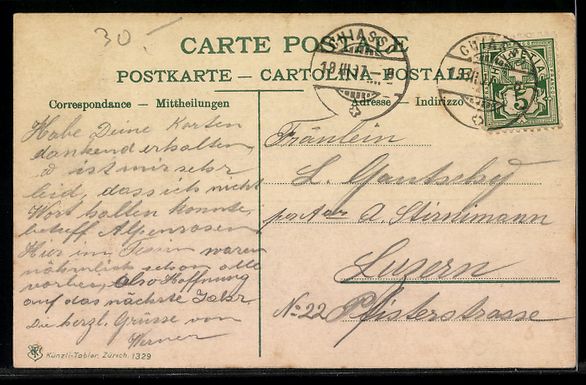 30.-
CARTE POSTALE
POSTKARTE – CARTOLINA-POSTALE
Correspondance – Mittheilungen
Adresse – Indirizzo
CHIASSO
HELVETIA
5
Habe Deine Karten
dankend erhalten,
ist mir sehr
leid, dass ich nicht
Wort halten konnte,
betreff Alpenrosen
Hier im Tessin waren
nähmlich schon alle
vorbei, also Hoffnung
auf das nächste Jahr
Die herzl. Grüsse von
Werner
Fräulein
L. Gautschy
A. Stirnimann
Luzern
No. 22 Pfisterstrasse
Künzli-Tobler, Zürich. 1329